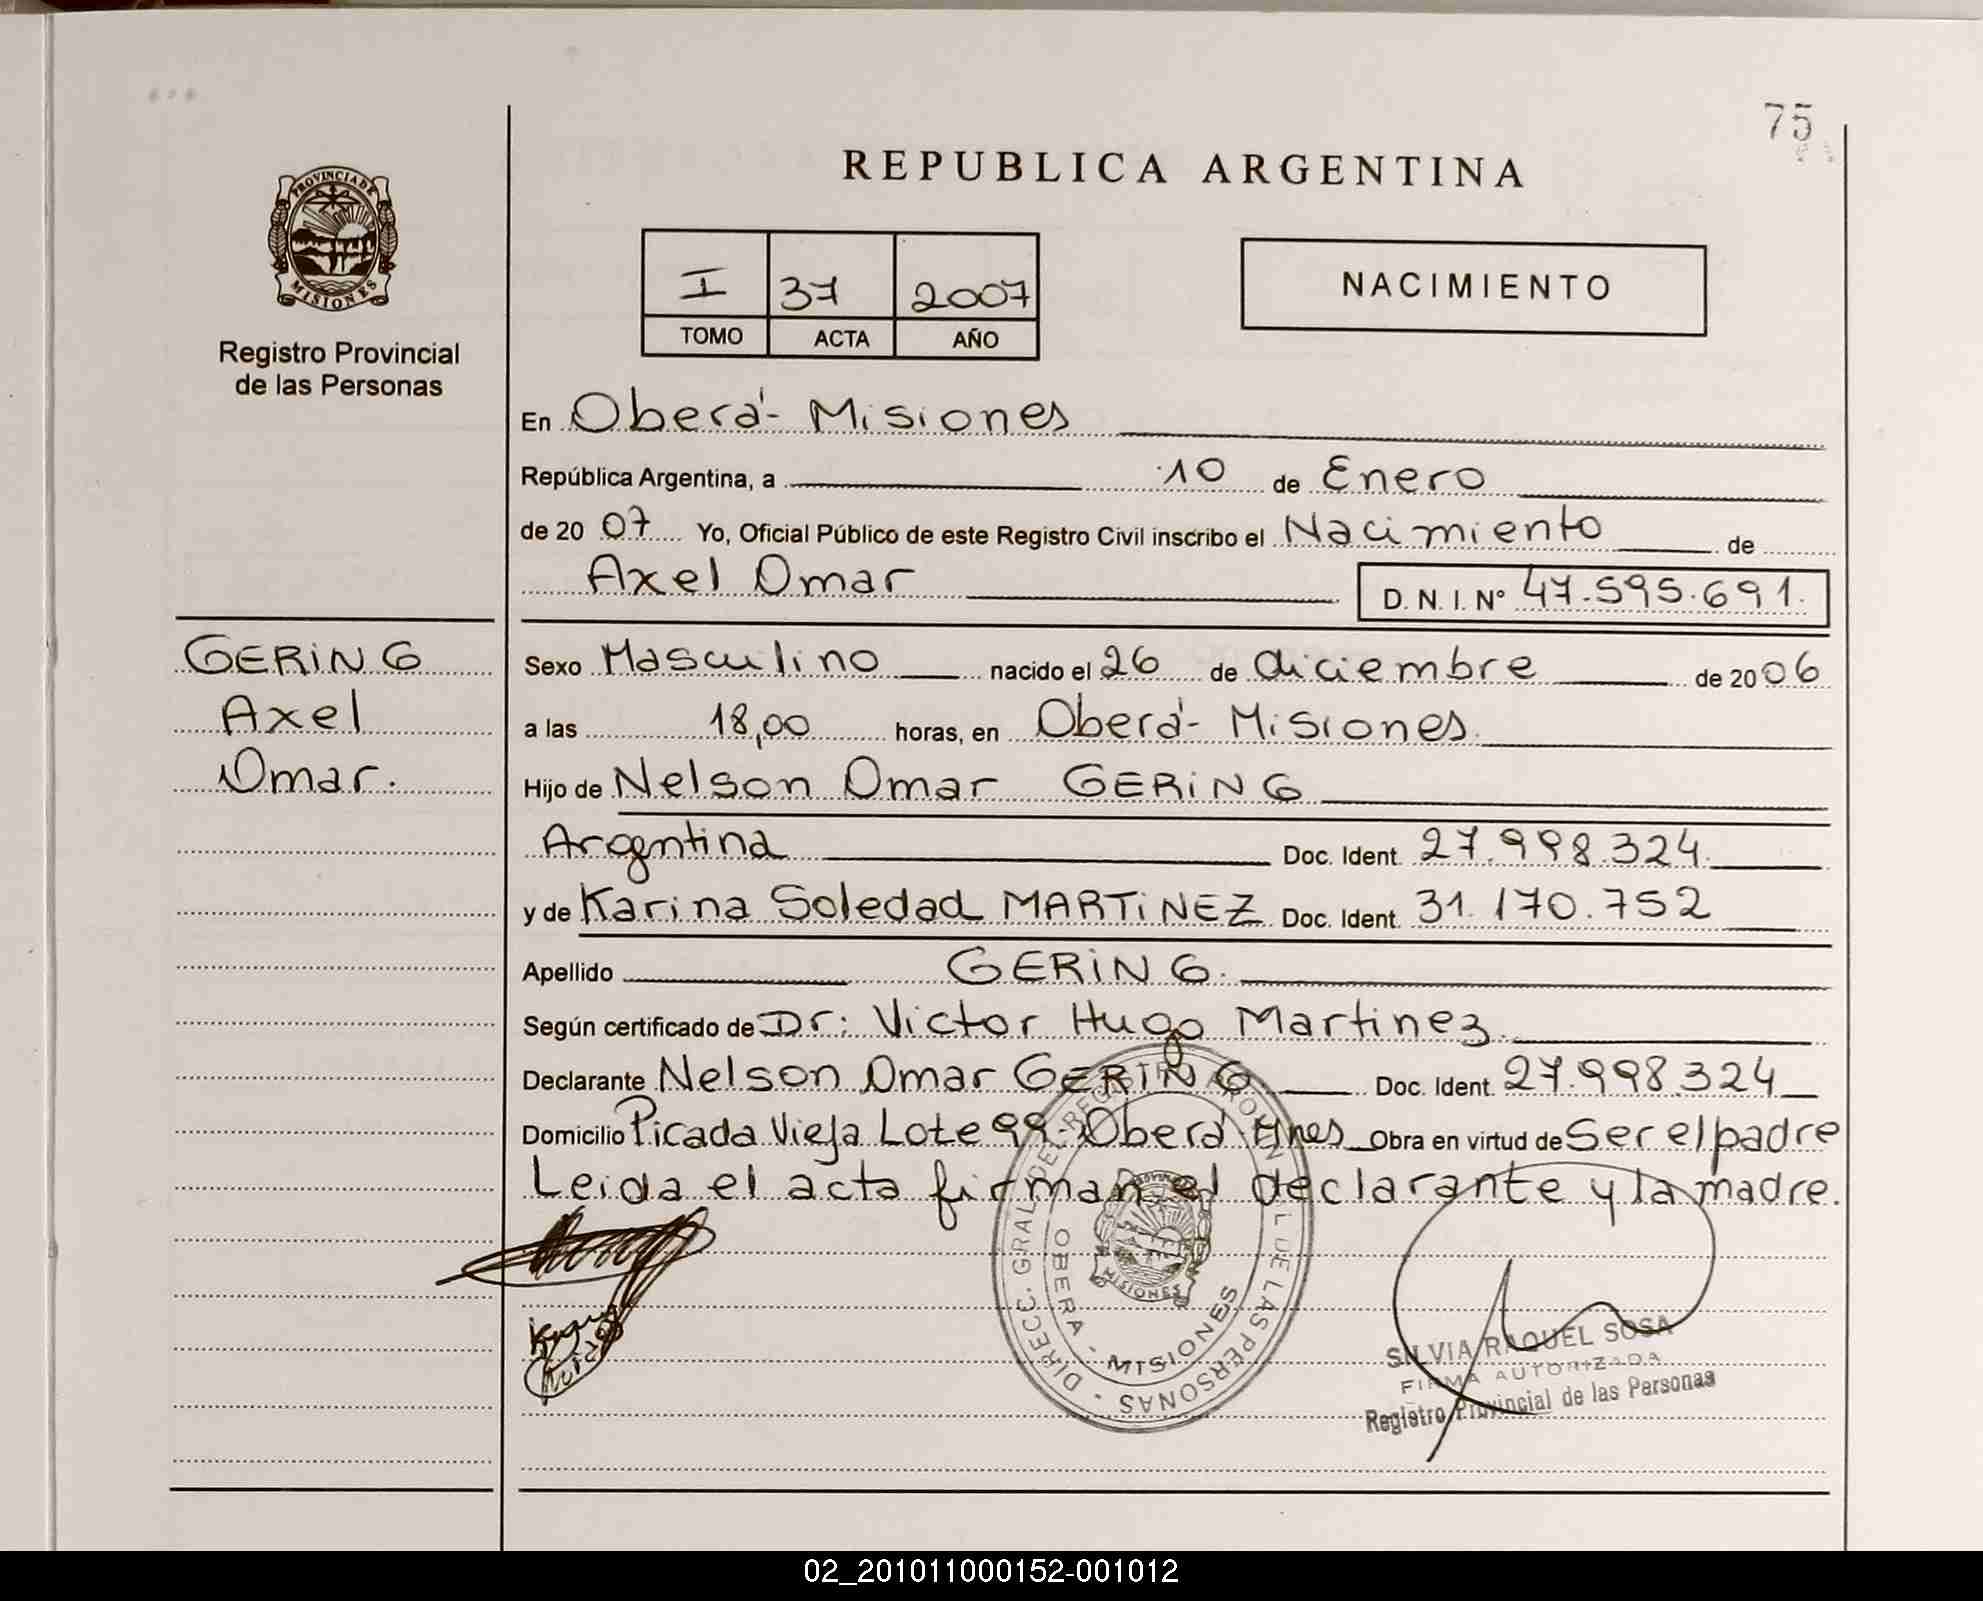 75
REPUBLICA ARGENTINA
PROVINCIA DE
MISIONES
Registro Provincial
de las Personas
I 37 2007
TOMO ACTA AÑO
NACIMIENTO
En Oberá - Misiones
República Argentina, a 10 de Enero
de 20 07 Yo, Oficial Público de este Registro Civil inscribo el Nacimiento de
Axel Omar D. N. I. N° 47.595.691.
GERING
Axel
Omar.
Sexo Masculino nacido el 26 de diciembre de 20 06
a las 18,00 horas, en Oberá - Misiones.
Hijo de Nelson Omar GERING
Argentina Doc. Ident. 27.998.324.
y de Karina Soledad MARTINEZ Doc. Ident. 31.170.752
Apellido GERING.
Según certificado de Dr: Victor Hugo Martinez.
Declarante Nelson Omar GERING. Doc. Ident. 27.998.324
Domicilio Picada Vieja Lote 99 - Oberá Mnes Obra en virtud de Ser el padre
Leida el acta firman el declarante y la madre.
OBERA - MISIONES
MISIONES
SILVIA RAQUEL SOSA
FIRMA AUTORIZADA
Registro Provincial de las Personas
02_201011000152-001012